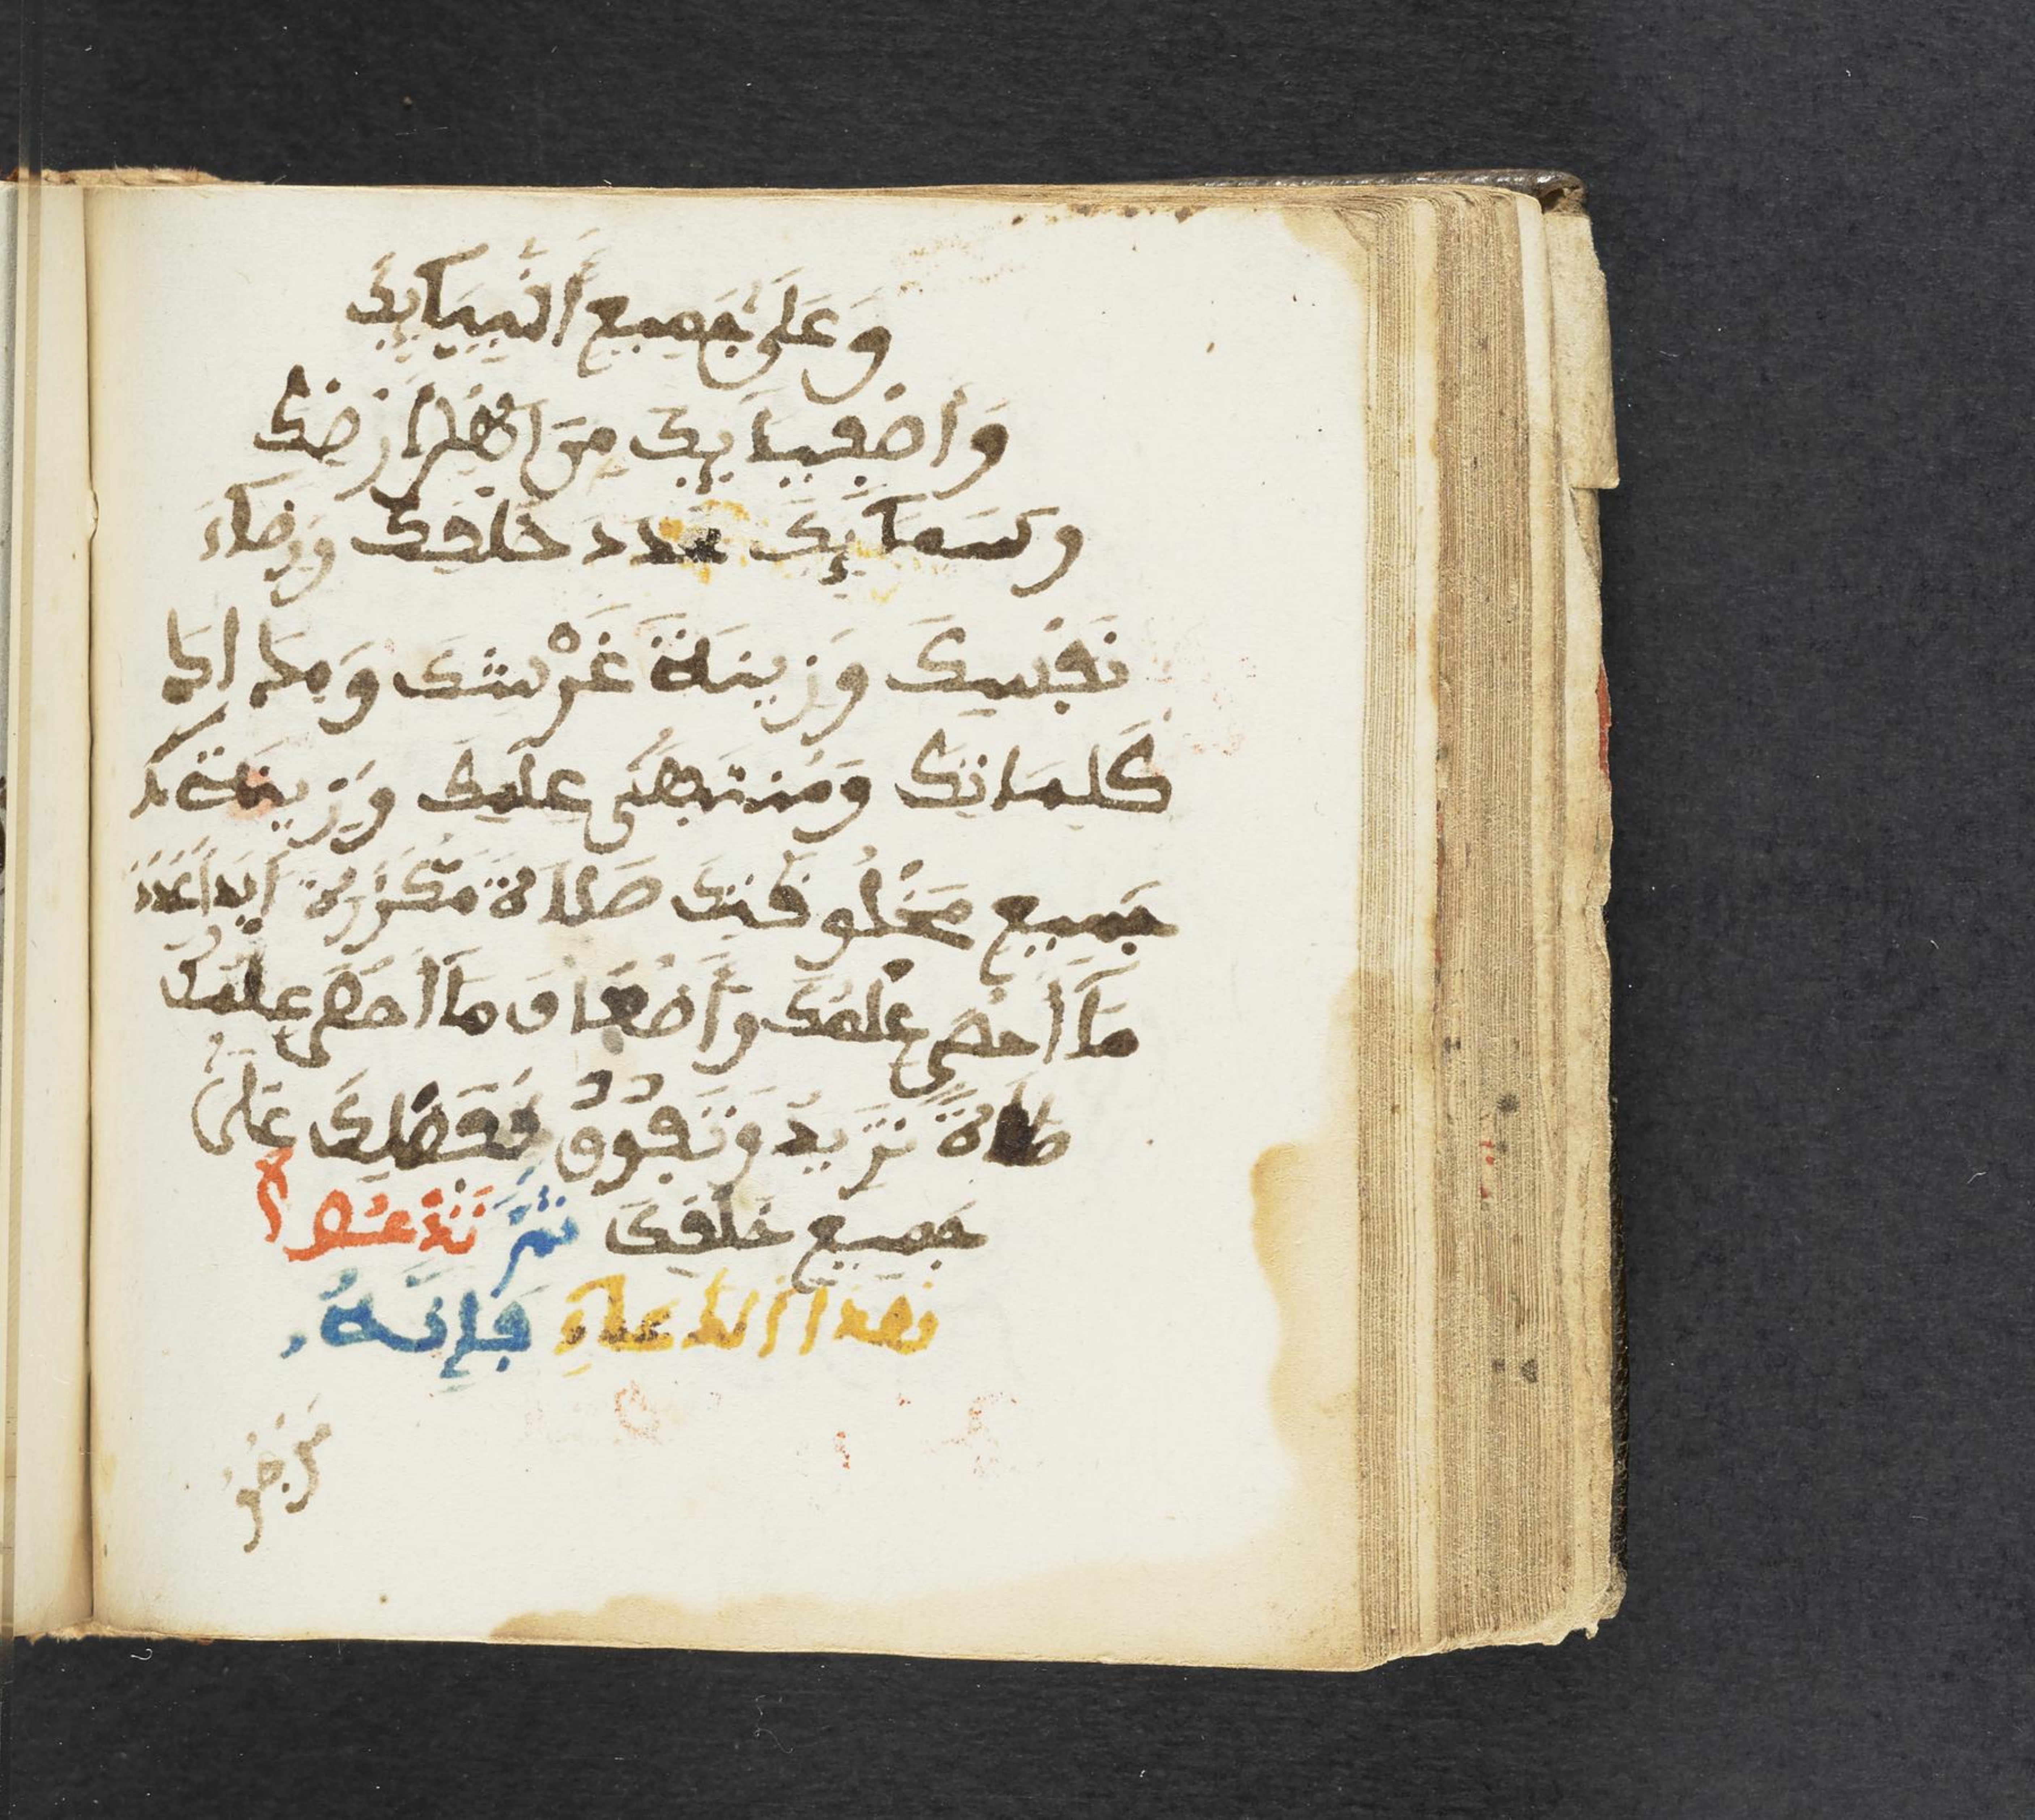 وَعَلَىٰ جَمِيعِ أَنْبِيَآئِكَ
وَأَصْفِيَآئِكَ مِنْ أَهْلِ أَرْضِكَ
وَسَمَآئِكَ عَدَدَ خَلْقِكَ وَرِضَآءَ
نَفْسِكَ وَزِينَةَ عَرْشِكَ وَمِدَادَ
كَلِمَاتِكَ وَمُنْتَهَىٰ عِلْمِكَ وَزِينَةَ
جَمِيعِ مَخْلُوقَتِكَ صَلَاةً مُكَرَّرَةً أَبَدًا عَدَدَ
مَآ أَحْصَى عِلْمُكَ وَأَضْعَافَ مَآ أَحْصَى عِلْمُكَ
صَلَاةً تَزِيدُ وَتَفُوقُ وَتَفْضُلُ عَلَىٰ
جَمِيعِ خَلْقِكَ ثُمَّ تَدْعُوا
بِهَذَا الدُّعَآءِ فَإِنَّهُ
مَرْجُوُّ